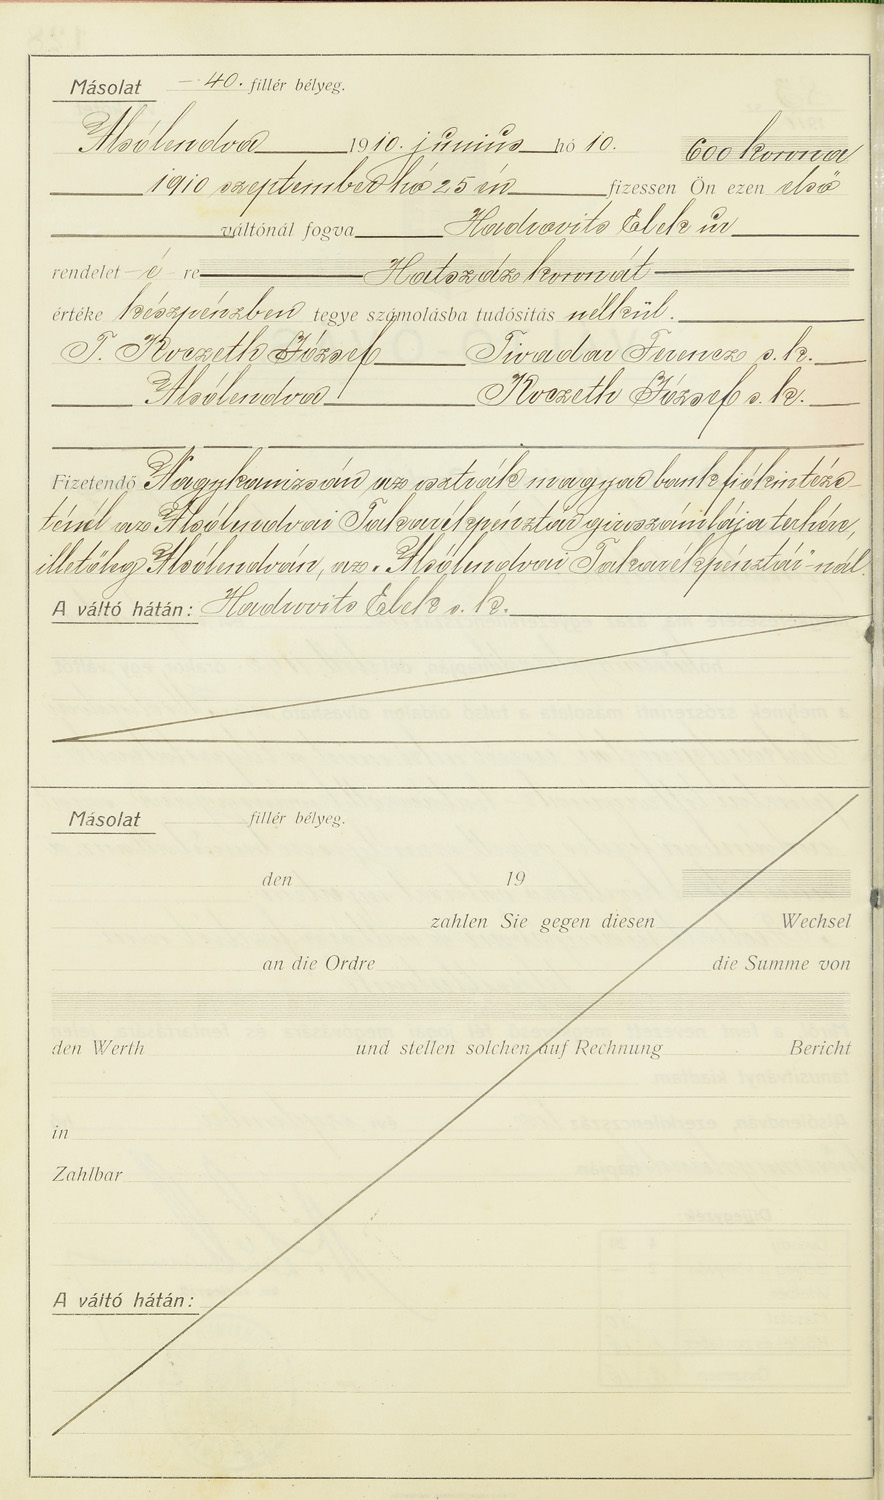 Másolat — 40. fillér bélyeg.
Alsólendva 1910. junius hó 10. 600 korona
1910 szeptember hó 25 én fizessen Ön ezen első
váltónál fogva Hadrovits Elek úr
rendelet é re Hatszáz koronát
értéke készpénzben tegye számolásba tudósitás nélkül.
T. Koczeth József Tivadar Ferencz s. k.
Alsólendva Koczeth József s. k.
Fizetendő Nagykanizsán az osztrák magyar bank fiókintéze-
ténél az Alsólendvai Takarékpénztár giroszámlája terhén,
illetőleg Alsólendván, az „Alsólendvai Takarékpénztár"-nál.
A váltó hátán: Hadrovits Elek s. k.
Másolat fillér bélyeg.
den 19
zahlen Sie gegen diesen Wechsel
an die Ordre die Summe von
den Werth und stellen solchen auf Rechnung Bericht
in
Zahlbar
A váltó hátán: